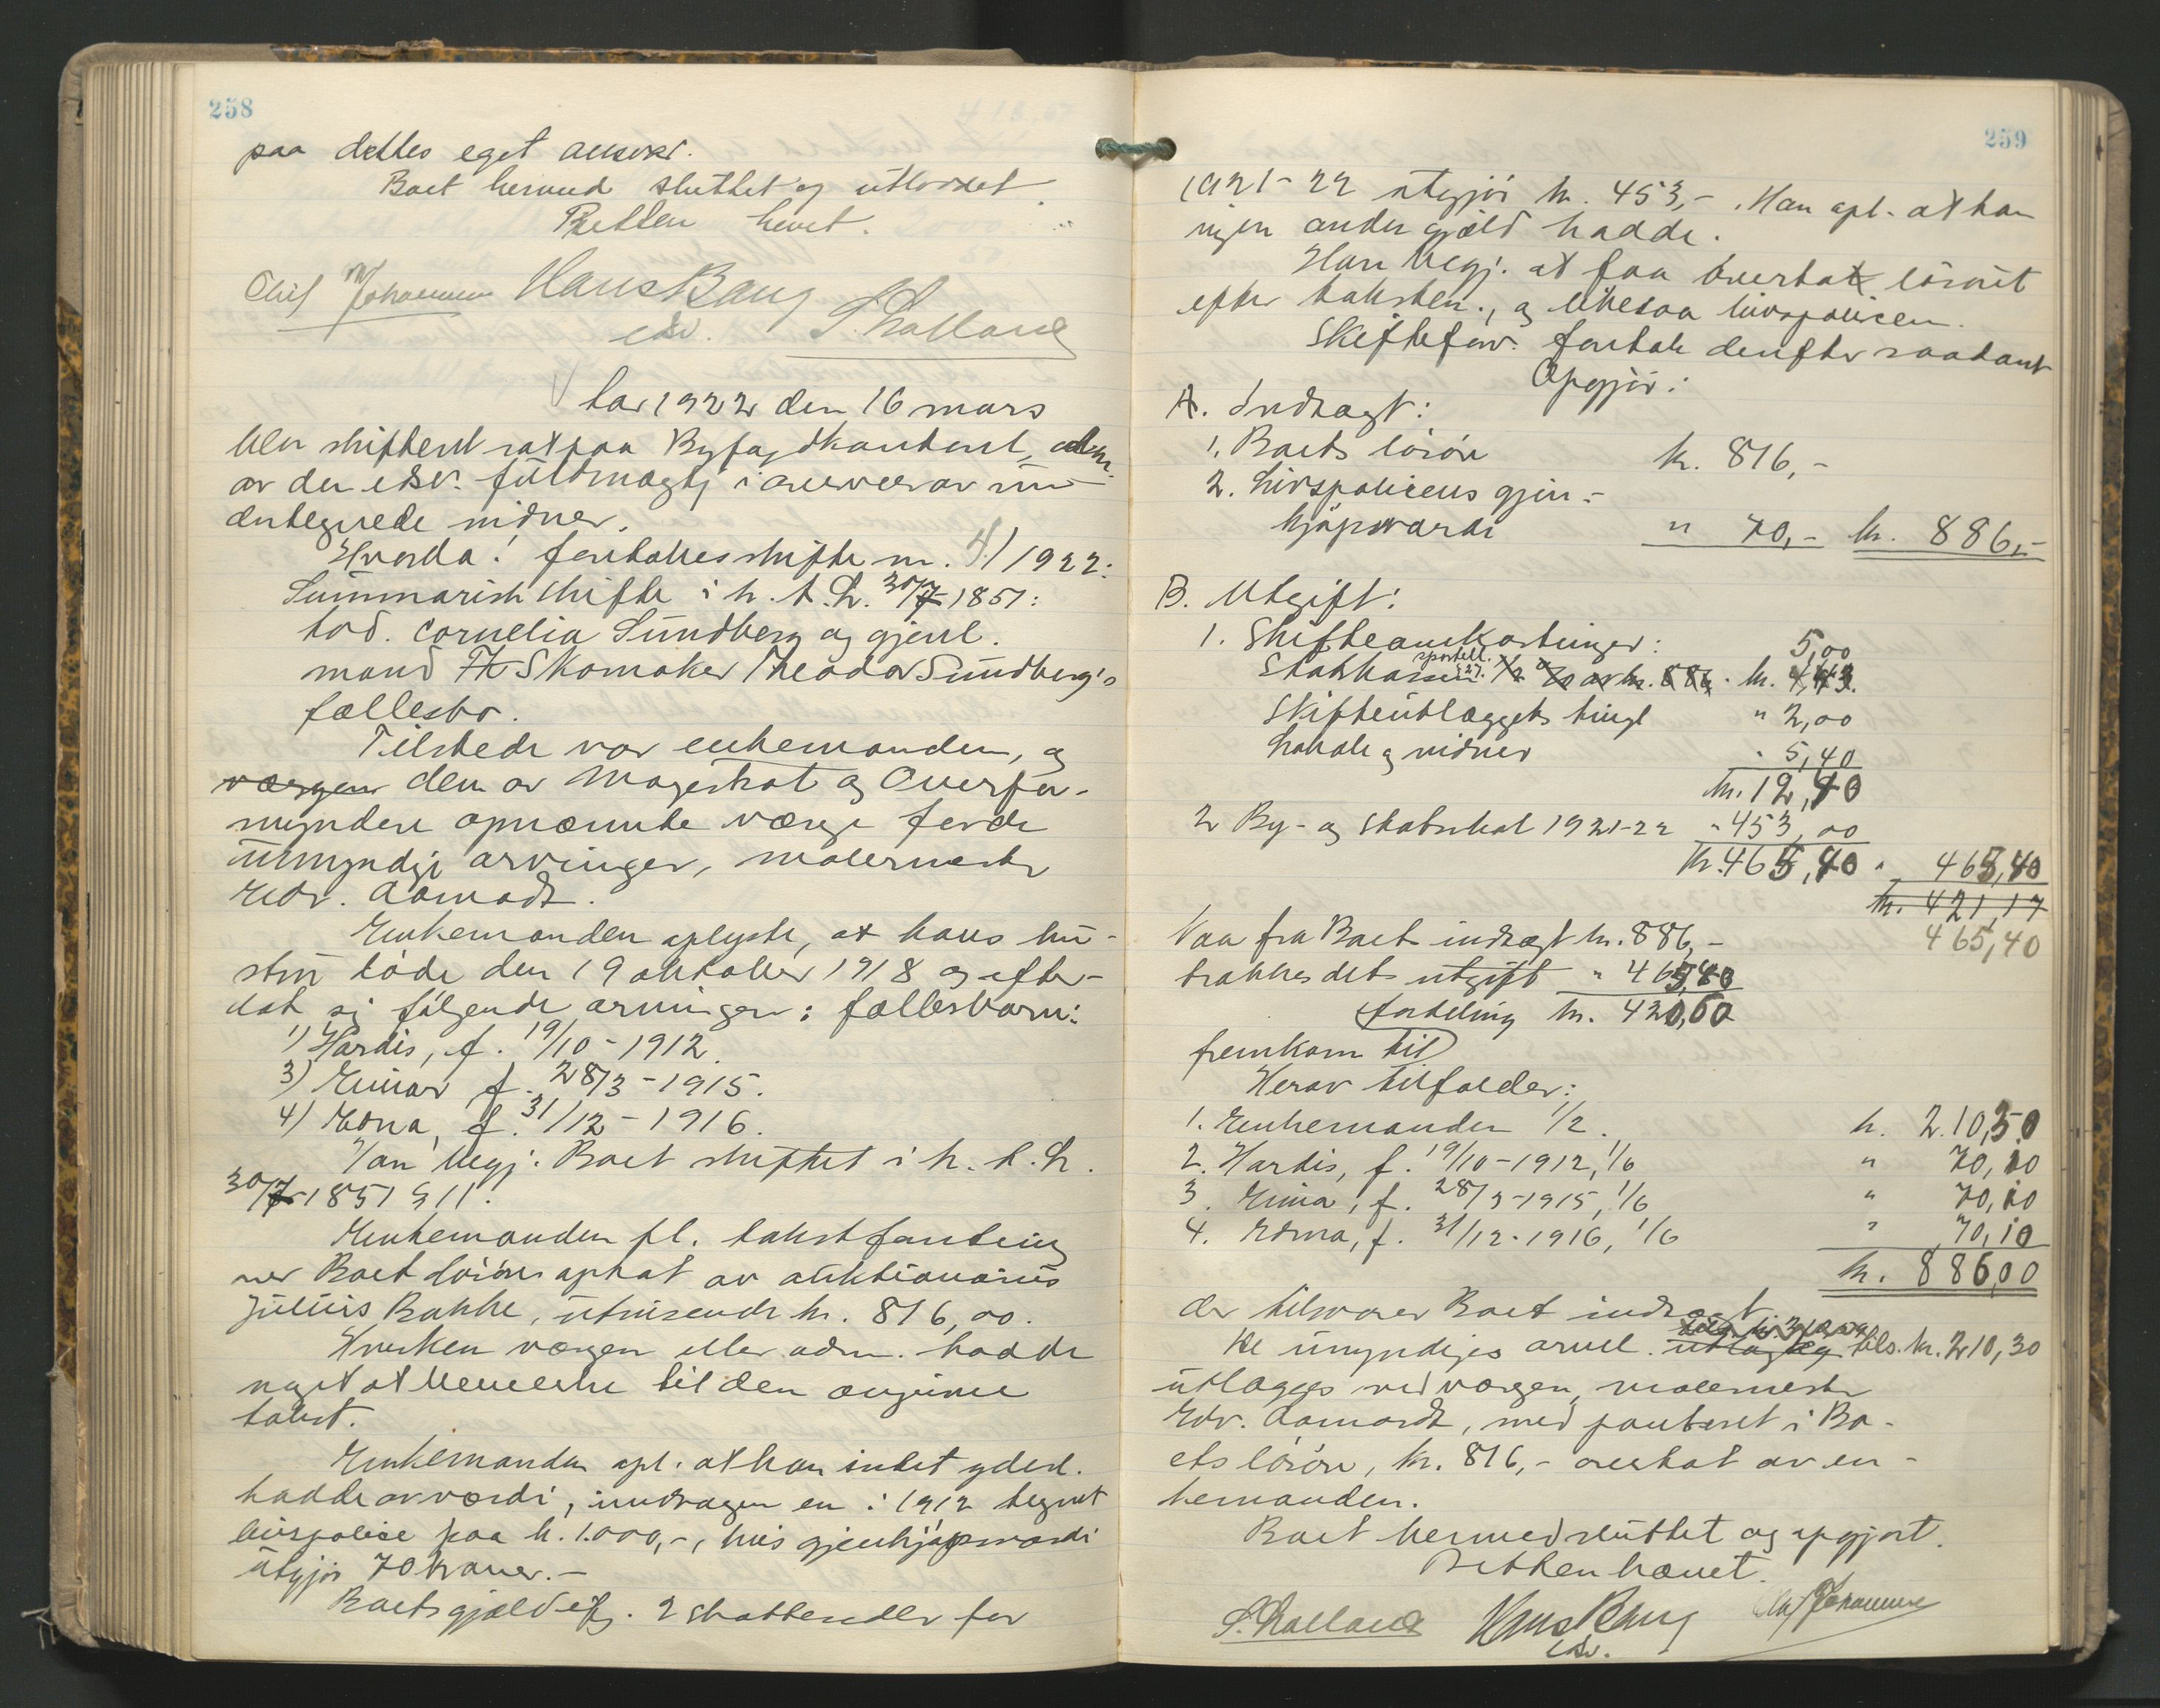 258
paa dettes eget ansvar.
Boet hermed sluttet og utloddet.
Retten hævet.
Olaf Johannessen Hans Bang
edsv. S. Lolland
Aar 1922 den 16 mars
blev skifteret sat paa Byfogdkontoret, adm.
av den edsv. fuldmægtig i overvær av un-
dertegnede vidner.
Hvorda: foretokes skifte nr. 4/1922:
Summarisk skifte i h. t. L. 30/7 1851:
avd. Cornelia Sundberg og gjenl.
mand Skomaker Theodor Sundberg's
fællesbo.
Tilstede var enkemanden, og
værgen den av Magistrat og Overfor-
mynderi opnævnte værge for de
umyndige arvinger, malermester
Edv. Aamodt.
Enkemanden oplyste, at hans hu-
stru døde den 19 oktober 1918 og efter-
lot sig følgende arvinger: fællesbarn:
1) Hardis, f. 19/10-1912.
3) Einar f. 28/3-1915.
4) Edna, f. 31/12-1916.
Han begj. Boet skiftet i h. t. L.
30/7-1851 § 11.
Enkemanden fl. takstforretning
over Boets løsøre optat av auktionarius
Julius Bakke, utvisende kr. 816,00.
Hverken værgen eller adm. hadde
noget at bemerke til den angivne
takst.
Enkemanden opl. at han intet yderl.
hadde av værdi, undtagen en i 1912 tegnet
livspolise paa kr. 1.000,-, hvis gjenkjøpsværdi
utgjør 70 kroner.-
Boets gjæld efg. 2 skattesedler for
259
1921-22 utgjør kr. 453,-. Han opl. at han
ingen anden gjæld hadde.
Han begj. at faa overtat løsøret
efter taksten, og likesaa livspolicen.
Skifteforv. foretok derefter saadant
Opgjør:
A. Indtægt:
1. Boets løsøre kr. 816,-
2. Livspolicens gjen-
kjøpsværdi " 70,- kr. 886,-
B. Utgift:
1. Skifteomkostninger: 5,00
Statskassen sportell. § 27. 1/2 % av kr. 886. kr. 4,43.
Skifteutlæggets tingl " 2,00
Lokale og vidner " 5,40
kr. 12,40
2 By- og statsskat 1921-22 " 453,00
kr. 465,40 " 465,40
kr. 421,17
Naar fra Boets indtægt kr. 886,- 465,40
trækkes dets utgift " 465,40
fordeling kr. 420,60
fremkom til
Herav tilfalder:
1. Enkemanden 1/2. kr. 210,30
2. Hardis, f. 19/10-1912, 1/6 " 70,10
3. Eina, f. 28/3-1915, 1/6 " 70,10
4. Edna, f. 31/12-1916, 1/6 " 70,10
kr. 886,00
der tilsvarer Boets indtægt.
De umyndiges arvel. tils. kr. 210,30
utlægges ved værgen, malermester
Edv. Aamodt, med panteret i Bo-
ets løsøre, kr. 816,- overtat av en-
kemanden.
Boet hermed sluttet og opgjort.
Retten hævet.
S. Lolland Hans Bang Olaf Johannessen
edsv.